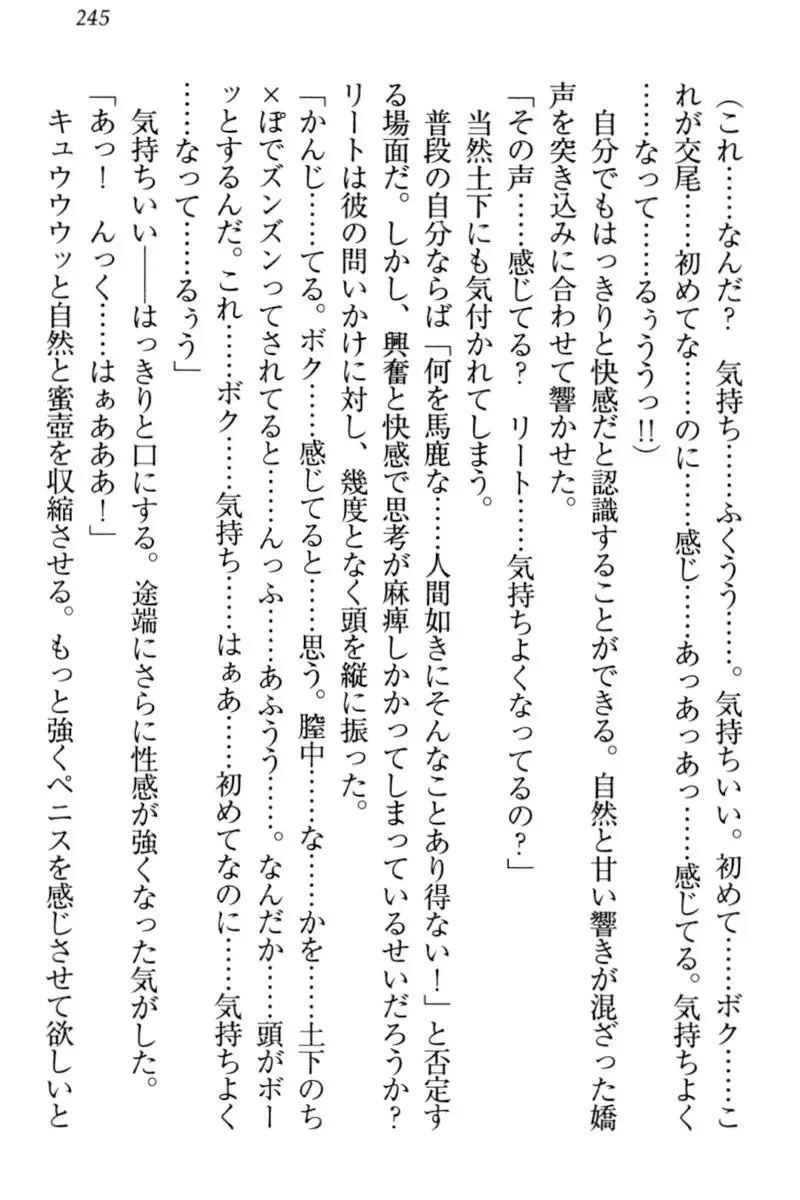 245
(これ……なんだ？　気持ち……ふくうう……。気持ちいい。初めて……ボク……こ
れが交尾……初めてな……のに……感じ……あっあっあっ……感じてる。気持ちよく
……なって……るぅううっ!!)
自分でもはっきりと快感だと認識することができる。自然と甘い響きが混ざった嬌
声を突き込みに合わせて響かせた。
「その声……感じてる？　リート……気持ちよくなってるの？」
当然土下にも気付かれてしまう。
普段の自分ならば「何を馬鹿な……人間如きにそんなことあり得ない！」と否定す
る場面だ。しかし、興奮と快感で思考が麻痺しかかってしまっているせいだろうか？
リートは彼の問いかけに対し、幾度となく頭を縦に振った。
「かんじ……てる。ボク……感じてると……思う。膣中……な……かを……土下のち
×ぽでズンズンってされてると……んっふ……あふうう……。なんだか……頭がボー
ッとするんだ。これ……ボク……気持ち……はぁあ……初めてなのに……気持ちよく
……なって……るぅう」
気持ちいい――はっきりと口にする。途端にさらに性感が強くなった気がした。
「あっ！　んっく……はぁあああ！」
キュウウウッと自然と蜜壺を収縮させる。もっと強くペニスを感じさせて欲しいと